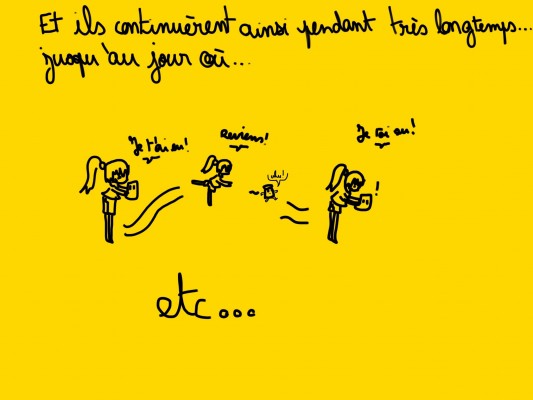 Et ils continuèrent ainsi pendant très longtemps...
jusqu'au jour où...
Je t'ai eu!
Reviens!
Je t'ai eu!
!
etc...